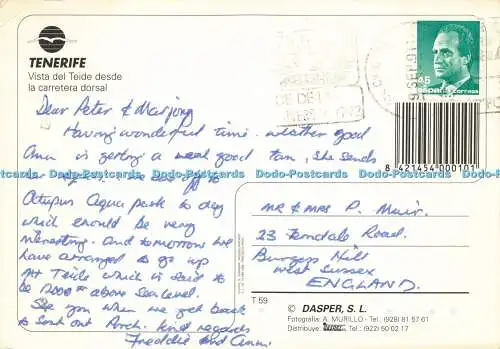 TENERIFE
Vista del Teide desde
la carretera dorsal
45
españa correos
Dear Peter & Marjory
Having wonderful time. weather good
Ann is getting a good tan, She sends
to
Octupus Aqua park to day
which should be very
interesting. and tomorrow we
have arranged to go up
Mt Teide which is said to
be 12000ft above Sea level.
See you when we get back
to Sort out Arch. kind regards
Freddie and Ann.
MR & MRS P. Muir.
23 Ferndale Road.
Burgess Hill
West Sussex
ENGLAND.
8 421454 000101
T 59
© DASPER, S. L.
Fotografía: A. MURILLO - Tel. (928) 81 57 61
Distribuye: Tel. (922) 50 02 17
Dodo-Postcards Dodo-Postcards Dodo-Postcards Dodo-Postcards Dodo-Postcards